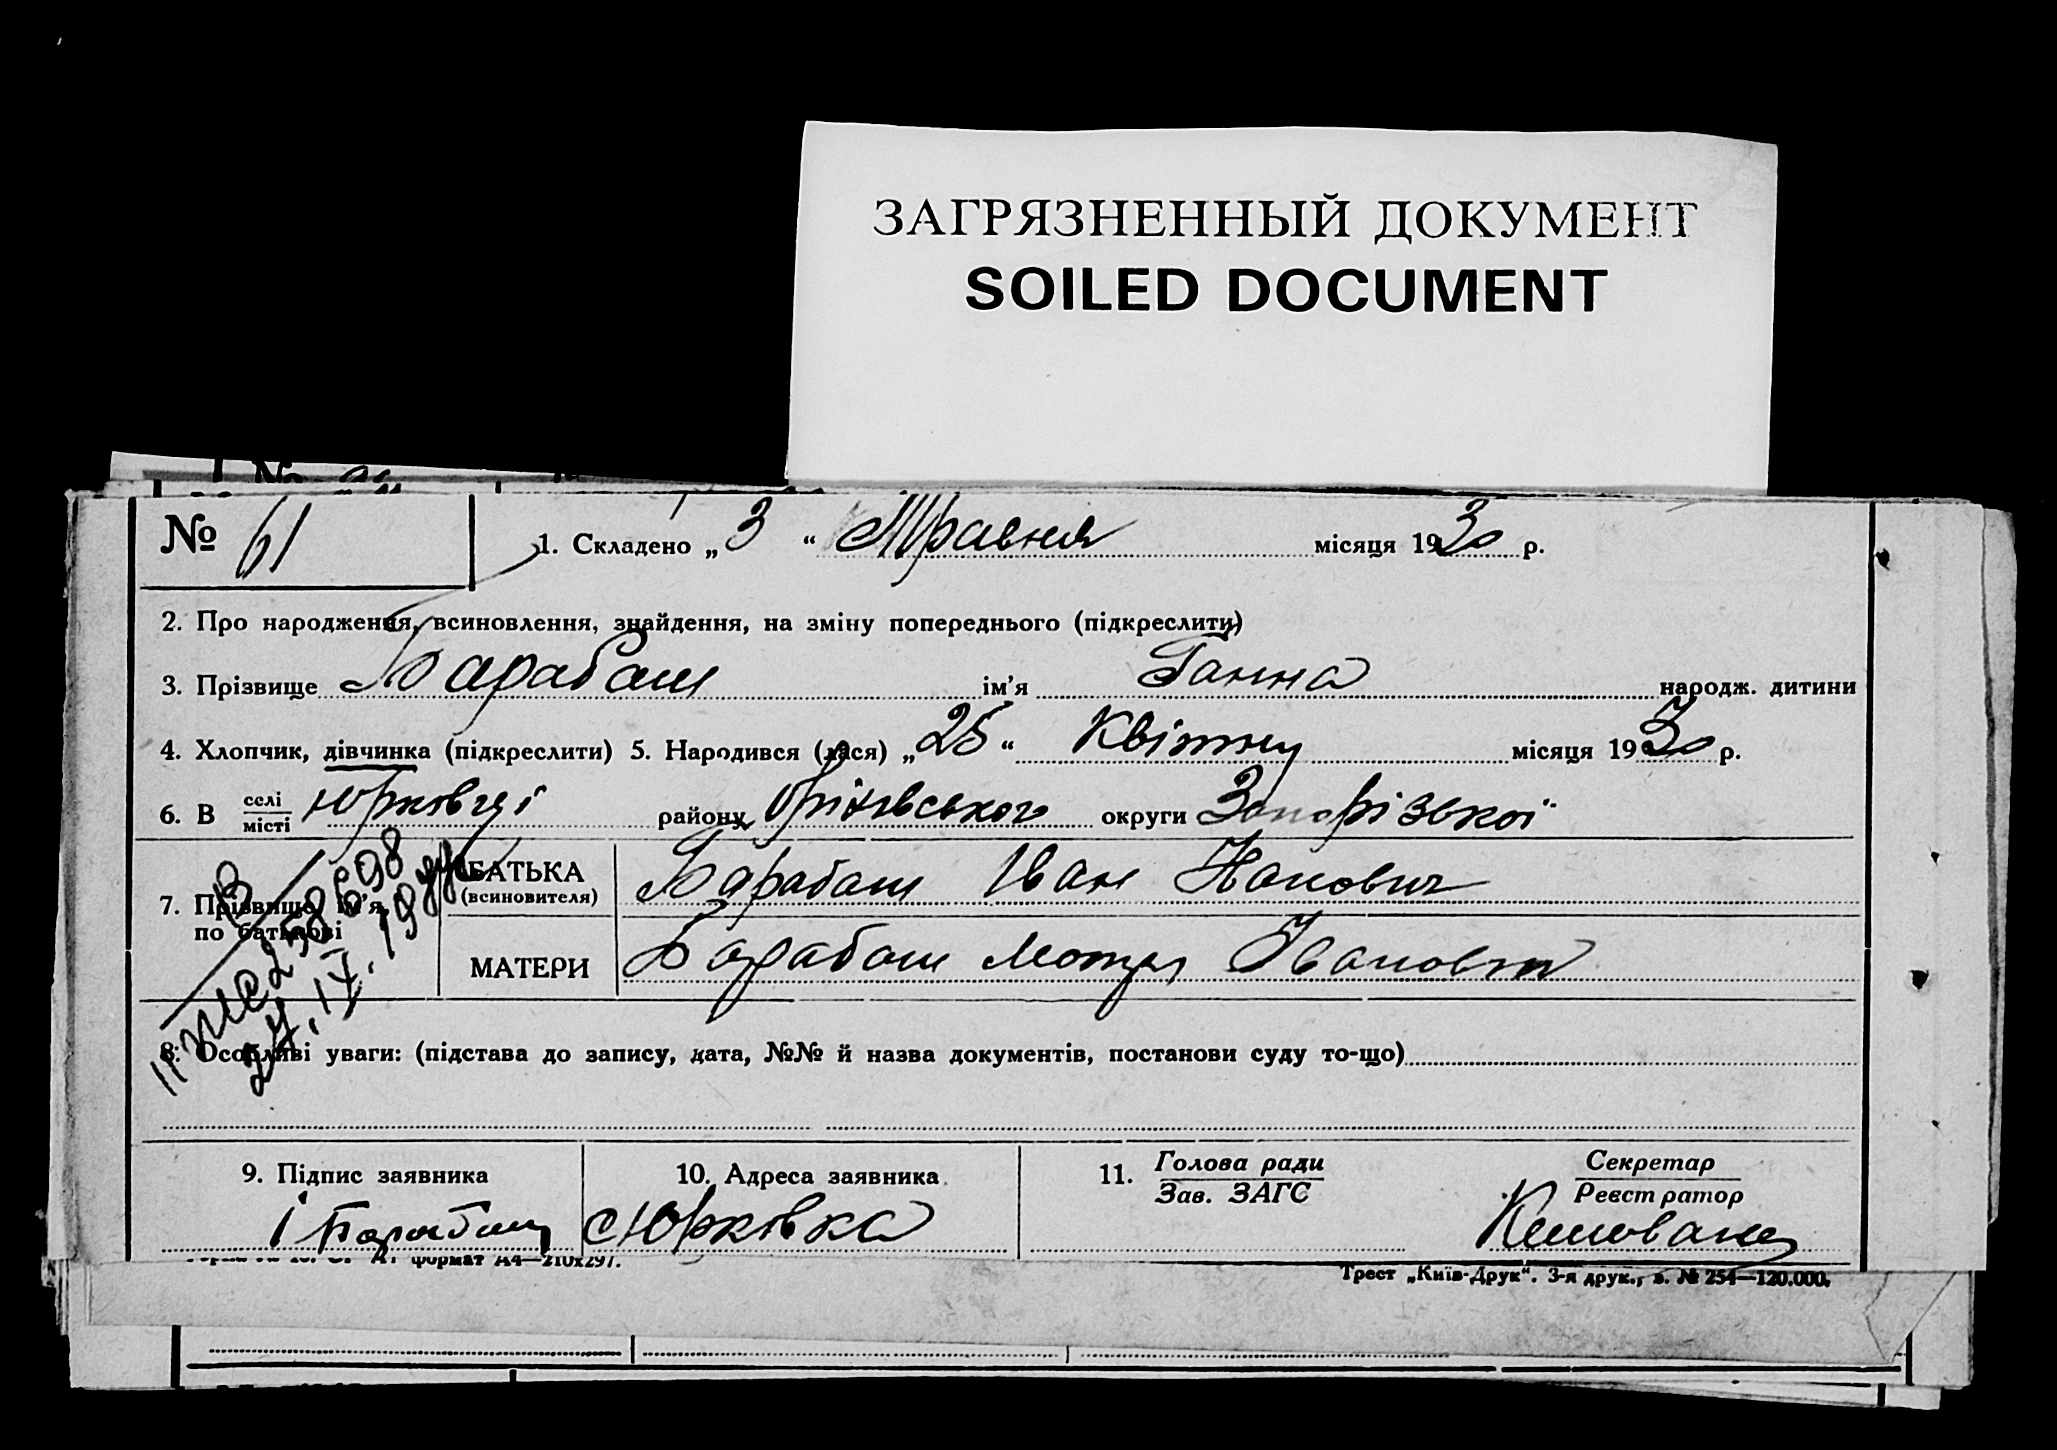 ЗАГРЯЗНЕННЫЙ ДОКУМЕНТ
SOILED DOCUMENT
№ 61
1. Складено „ 3 “ Травня місяця 1930 р.
2. Про народження, всиновлення, знайдення, на зміну попереднього (підкреслити)
3. Прізвище Барабаш ім’я Ганна народж. дитини
4. Хлопчик, дівчинка (підкреслити) 5. Народився (лася) „ 25 “ Квітня місяця 1930 р.
6. В селі місті Юрківці району Оріхівського округи Запорізької
7. Прізвище, ім’я, по батькові
БАТЬКА (всиновителя) Барабаш Іван
МАТЕРИ Барабаш Мотря Івановна
258698
24. IX. 1944
8. Особливі уваги: (підстава до запису, дата, №№ й назва документів, постанови суду то-що)
9. Підпис заявника
І Барабаш
10. Адреса заявника
с Юрківка
11. Голова ради
Зав. ЗАГС
Секретар
Реєстратор
формат А4—210х297.
Трест „Київ-Друк“. 3-я друк., з. № 254—120.000.